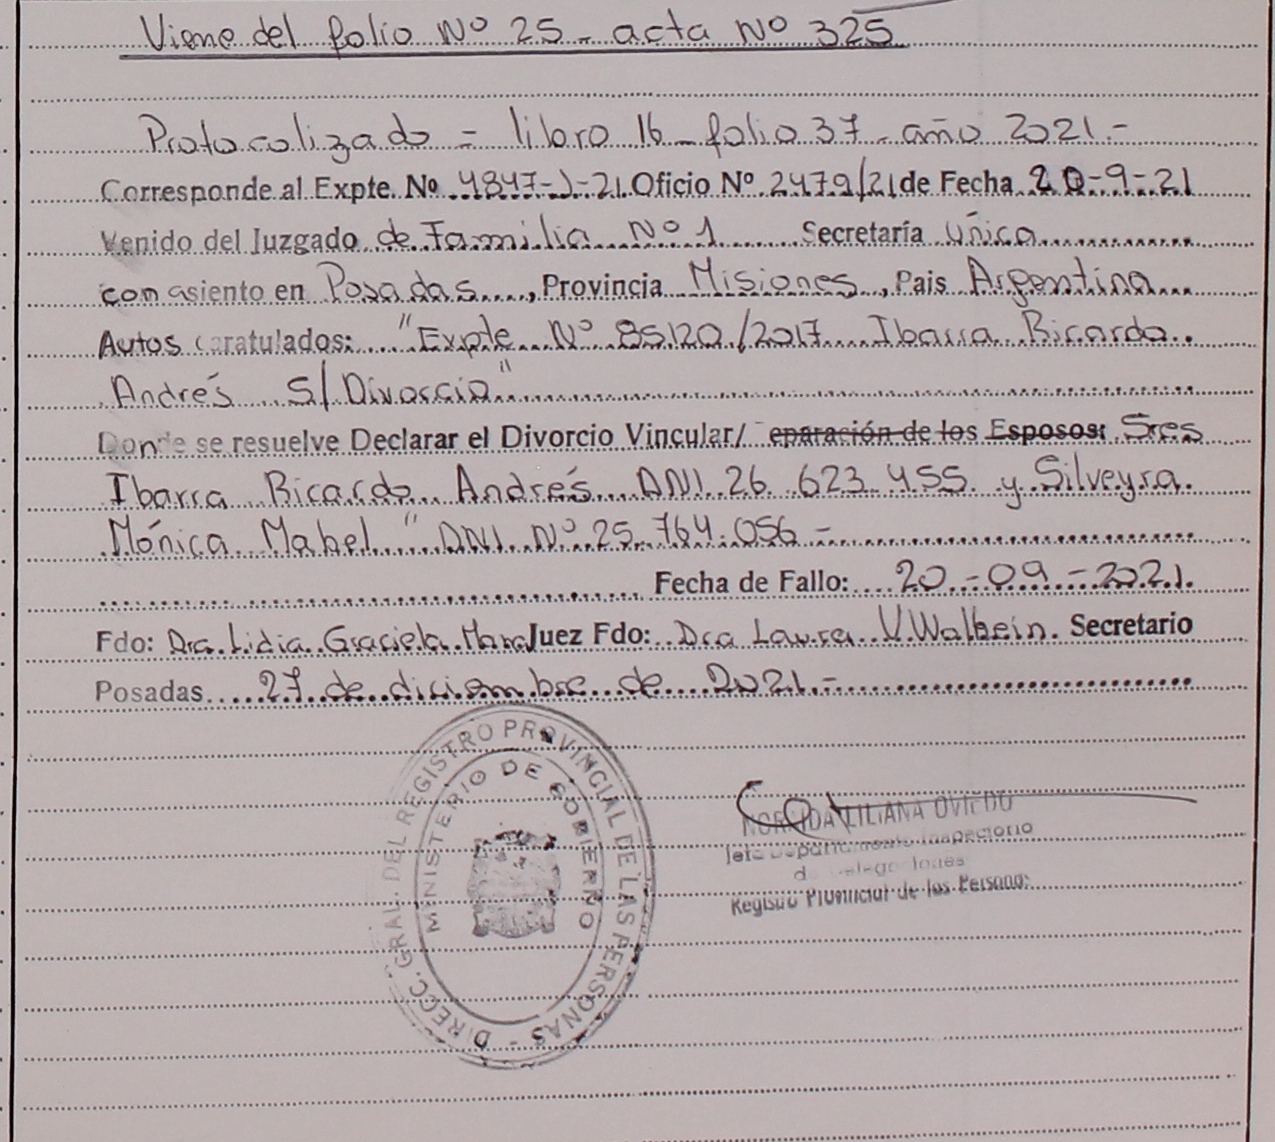 Viene del folio Nº 25 - acta Nº 325
Protocolizado = libro 16 - folio 37 - año 2021.-
Corresponde al Expte. Nº 4847-J-21. Oficio Nº 2479/21 de Fecha 20-9-21
Venido del Juzgado de Familia Nº 1 Secretaría única
con asiento en Posadas, Provincia Misiones, Pais Argentina
Autos caratulados: "Expte Nº 85120/2017 Ibarra Ricardo
Andrés S/ Divorcio"
Donde se resuelve Declarar el Divorcio Vincular/ eparación de los Esposos: Sres
Ibarra Ricardo Andrés DNI 26 623 455 y Silveyra
Mónica Mabel" DNI Nº 25.764.056 -
Fecha de Fallo: 20-09-2021.
Fdo: Dra. Lidia Graciela Juez Fdo: Dra Laura V. Walbein. Secretario
Posadas 27 de diciembre de 2021.-
DIRECC. GRAL. DEL REGISTRO PROVINCIAL DE LAS PERSONAS -
MINISTERIO DE GOBIERNO
LILIANA OVIEDO
Jefe Departamento Inspectorio
Registro Provincial de las Personas